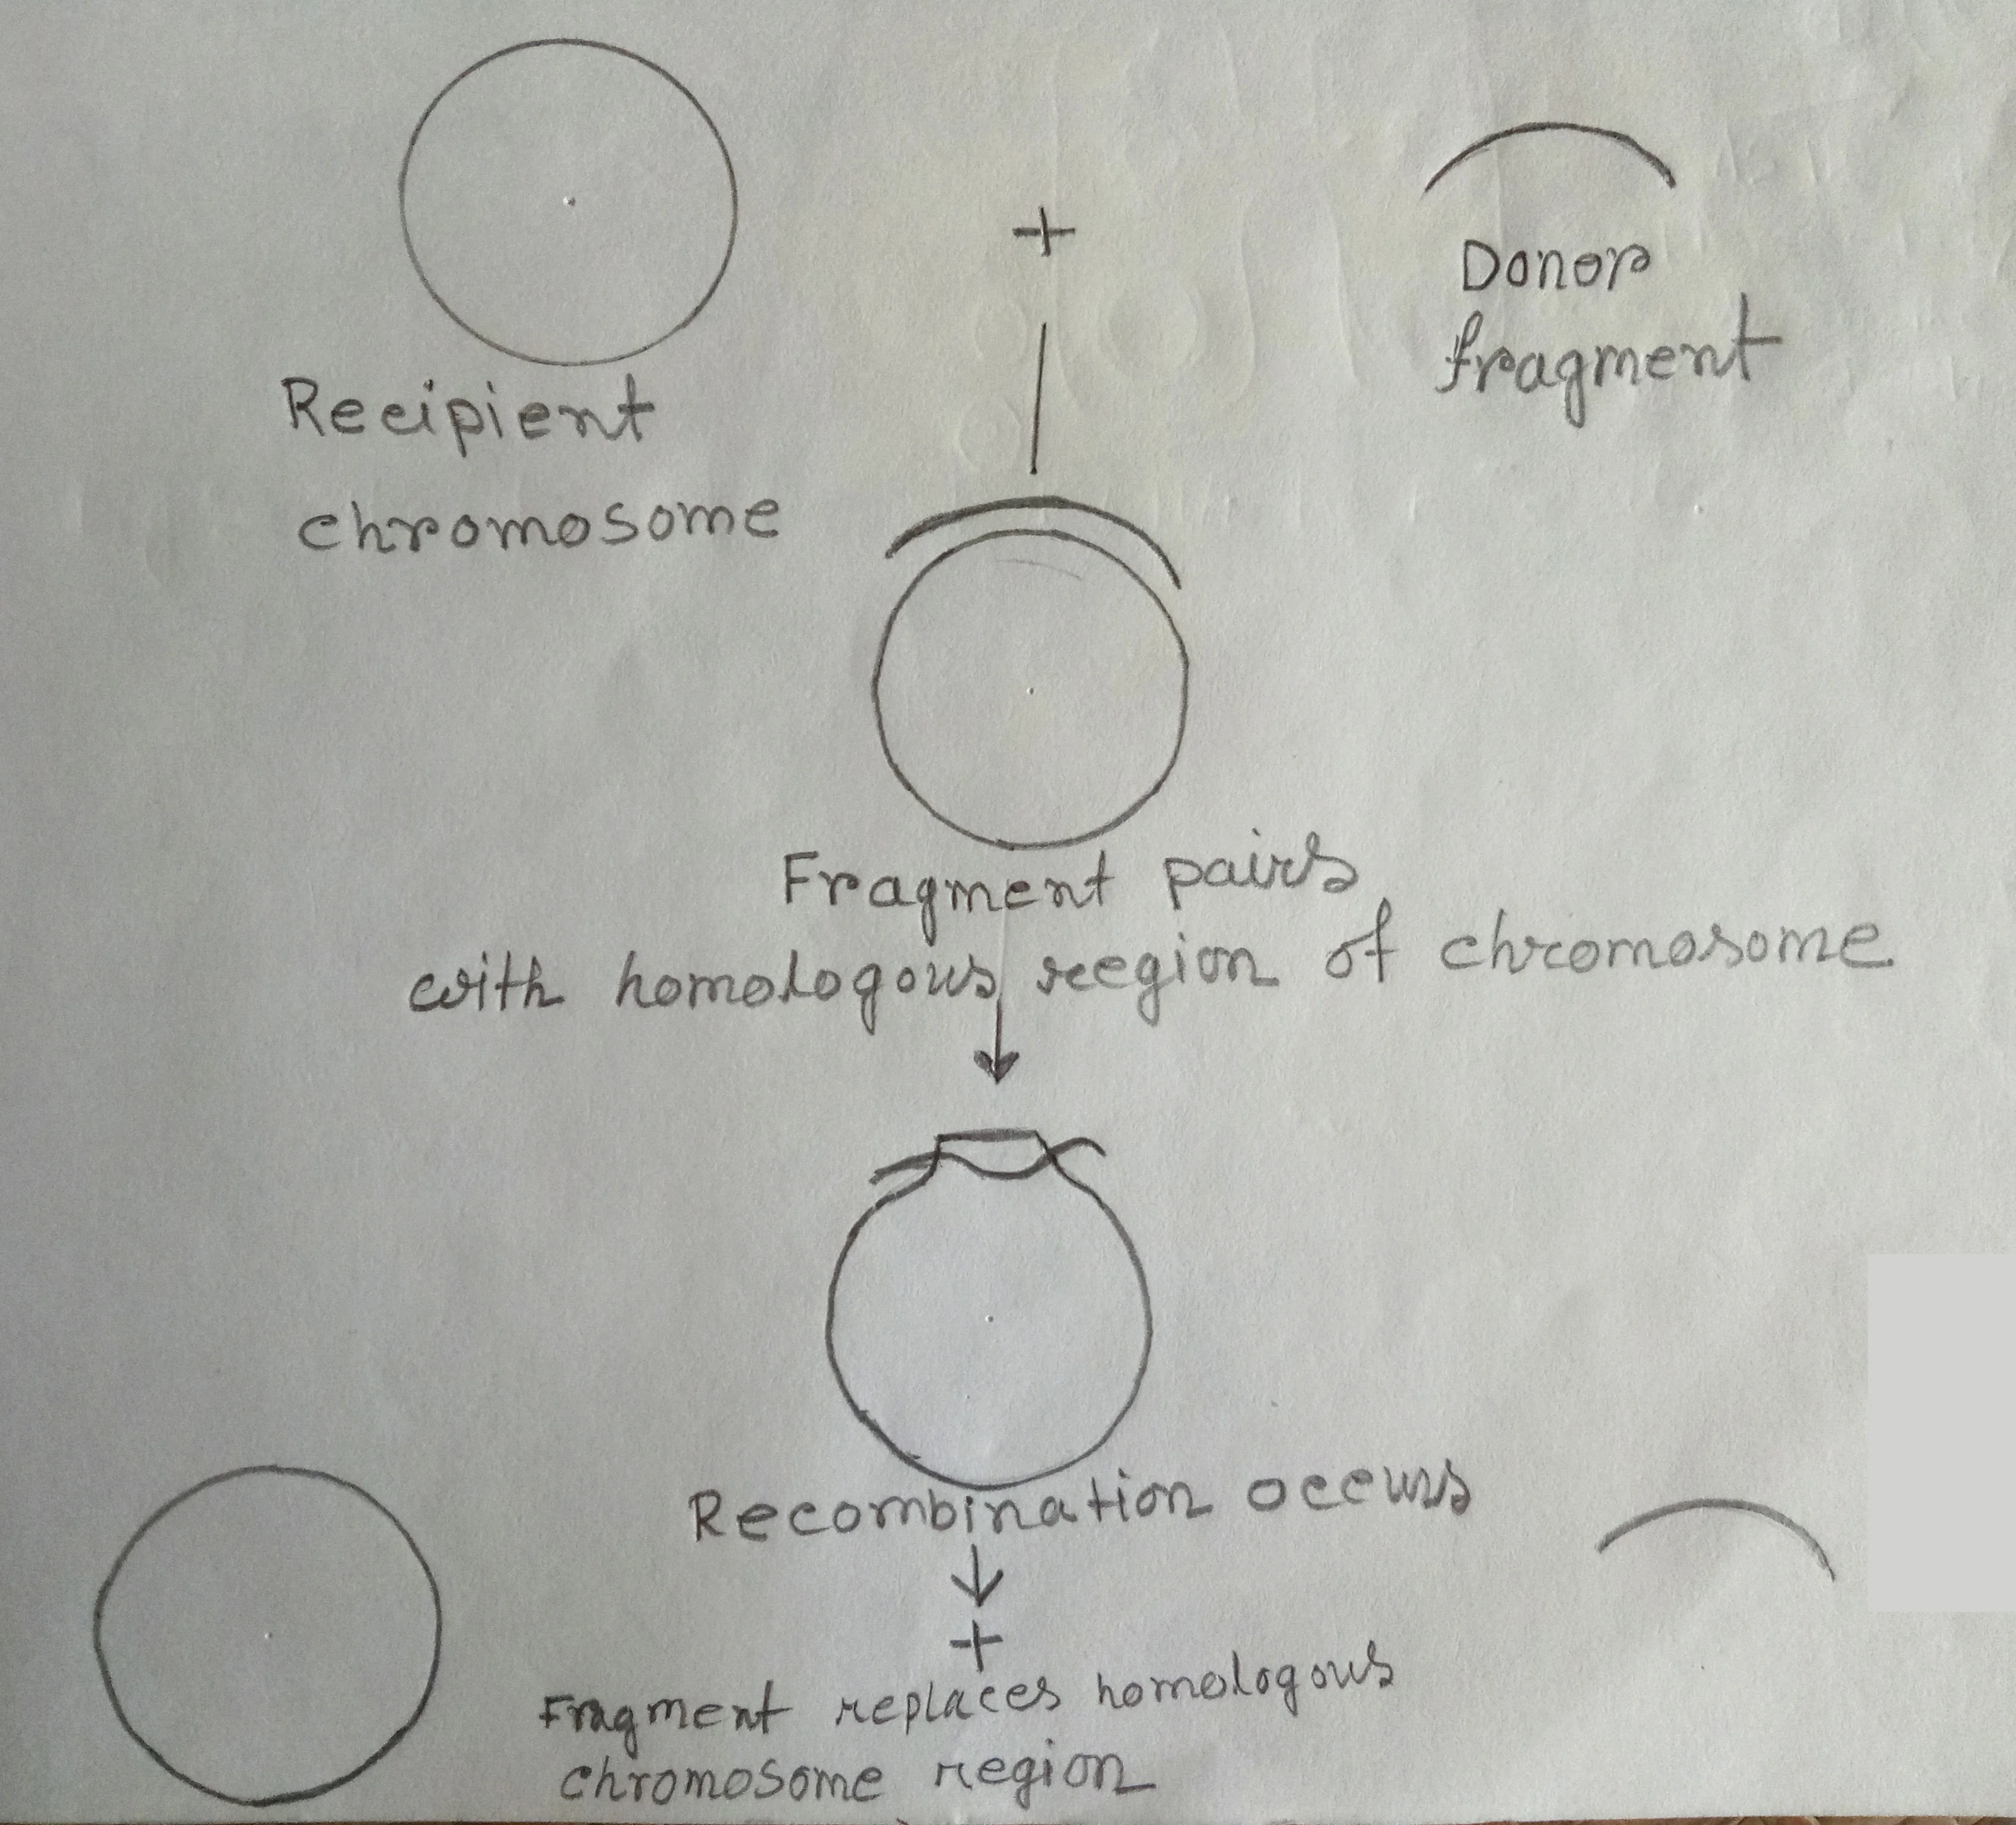 +
Donor
fragment
Recipient
chromosome
Fragment pairs
with homologous reegion of chromosome
Recombination occurs
+
Fragment replaces homologous
chromosome region